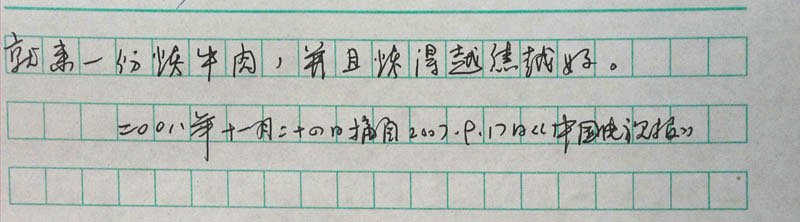 就来一份烤牛肉，并且烤得越焦越好。
二00八年十一月二十四日摘自2007.9.17日《中国电视报》